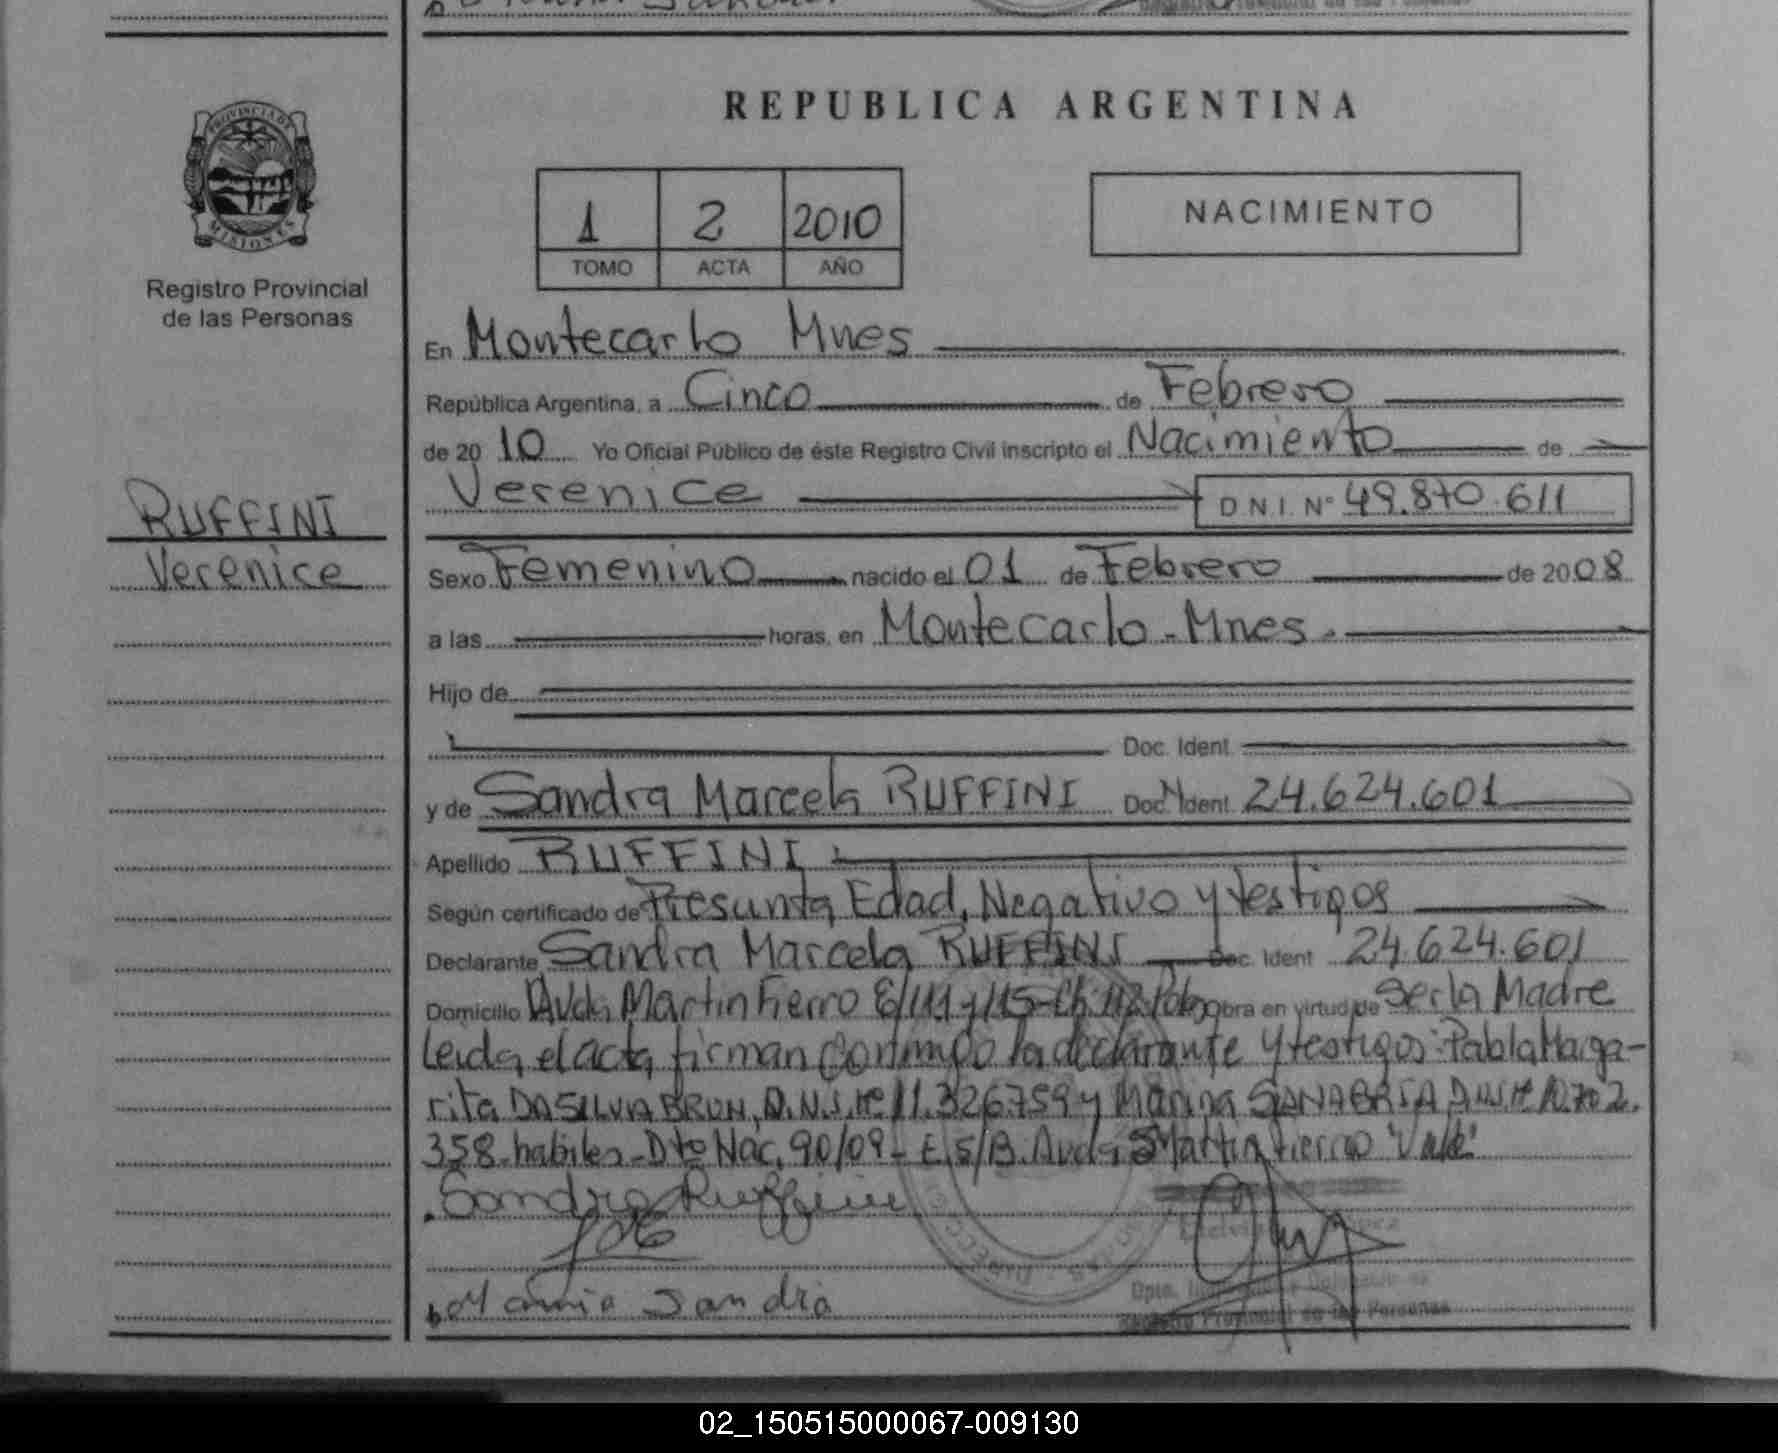 REPUBLICA ARGENTINA
PROVINCIA DE
MISIONES
Registro Provincial
de las Personas
1 2 2010
TOMO ACTA AÑO
NACIMIENTO
En Montecarlo Mnes
República Argentina, a Cinco de Febrero
de 20 10 Yo Oficial Público de éste Registro Civil inscripto el Nacimiento de
Verenice D.N.I. Nº 49.870.611
RUFFINI
Verenice
Sexo Femenino nacido el 01 de Febrero de 2008
a las horas, en Montecarlo - Mnes.
Hijo de
Doc. Ident.
y de Sandra Marcela RUFFINI Doc. Ident. 24.624.601
Apellido RUFFINI
Según certificado de Presunta Edad, Negativo y testigos
Declarante Sandra Marcela RUFFINI Doc. Ident 24.624.601
Domicilio Avda Martin Fierro E/111 y 115-Ch. 112 obra en virtud de Ser la Madre
Leida el acta, firman conmigo la declarante y testigos: Pabla Marga-
rita DA SILVA BRUN, D.N.I. Nº 11.326759 y Marina SANABRIA D.N.I. Nº 10.702.
358-habiles-Dto Nac. 90/09- E.S/B. Avda Martin Fierro "Vale"
Sandra Ruffini
Sandra
Registro Provincial de las Personas
02_150515000067-009130